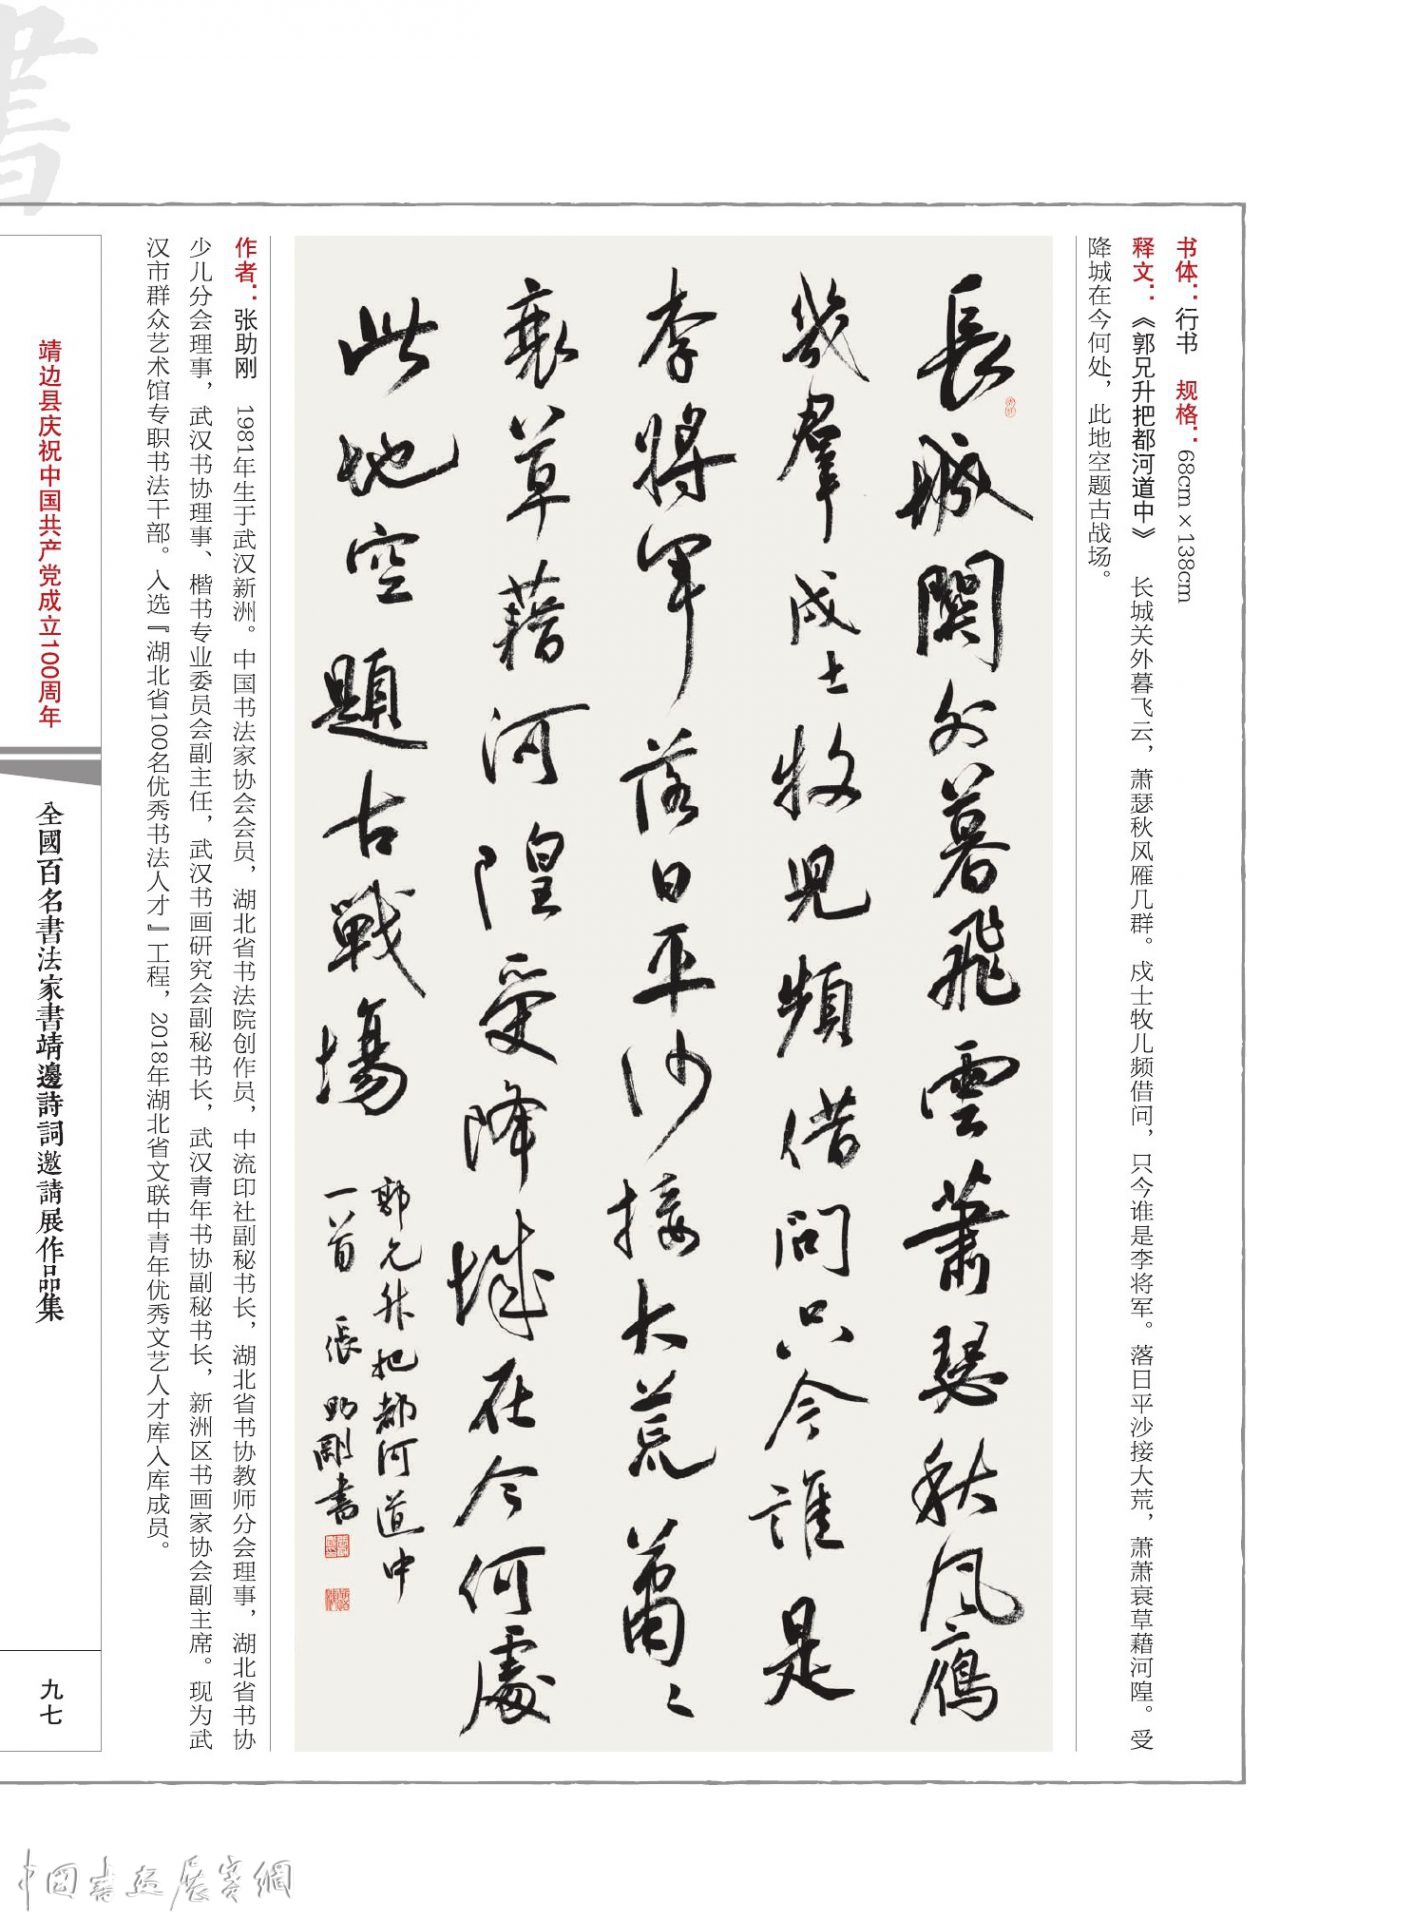 書
书体：行书　规格：68cm×138cm
释文：《郭兄升把都河道中》　长城关外暮飞云，萧瑟秋风雁几群。戍士牧儿频借问，只今谁是李将军。落日平沙接大荒，萧萧衰草藉河隍。受
降城在今何处，此地空题古战场。
長城關外暮飛雲蕭瑟秋風雁
幾群戍士牧兒頻借問只今誰是
李將軍落日平沙接大荒蕭〻
衰草藉河隍受降城在今何處
此地空題古戰場
郭允升把都河道中
一首　張助剛書
作者：张助刚　1981年生于武汉新洲。中国书法家协会会员，湖北省书法院创作员，中流印社副秘书长，湖北省书协教师分会理事，湖北省书协
少儿分会理事，武汉书协理事、楷书专业委员会副主任，武汉书画研究会副秘书长，武汉青年书协副秘书长，新洲区书画家协会副主席。现为武
汉市群众艺术馆专职书法干部。入选『湖北省100名优秀书法人才』工程，2018年湖北省文联中青年优秀文艺人才库入库成员。
靖边县庆祝中国共产党成立100周年
全國百名書法家書靖邊詩詞邀請展作品集
九七
中國書畫展賽網